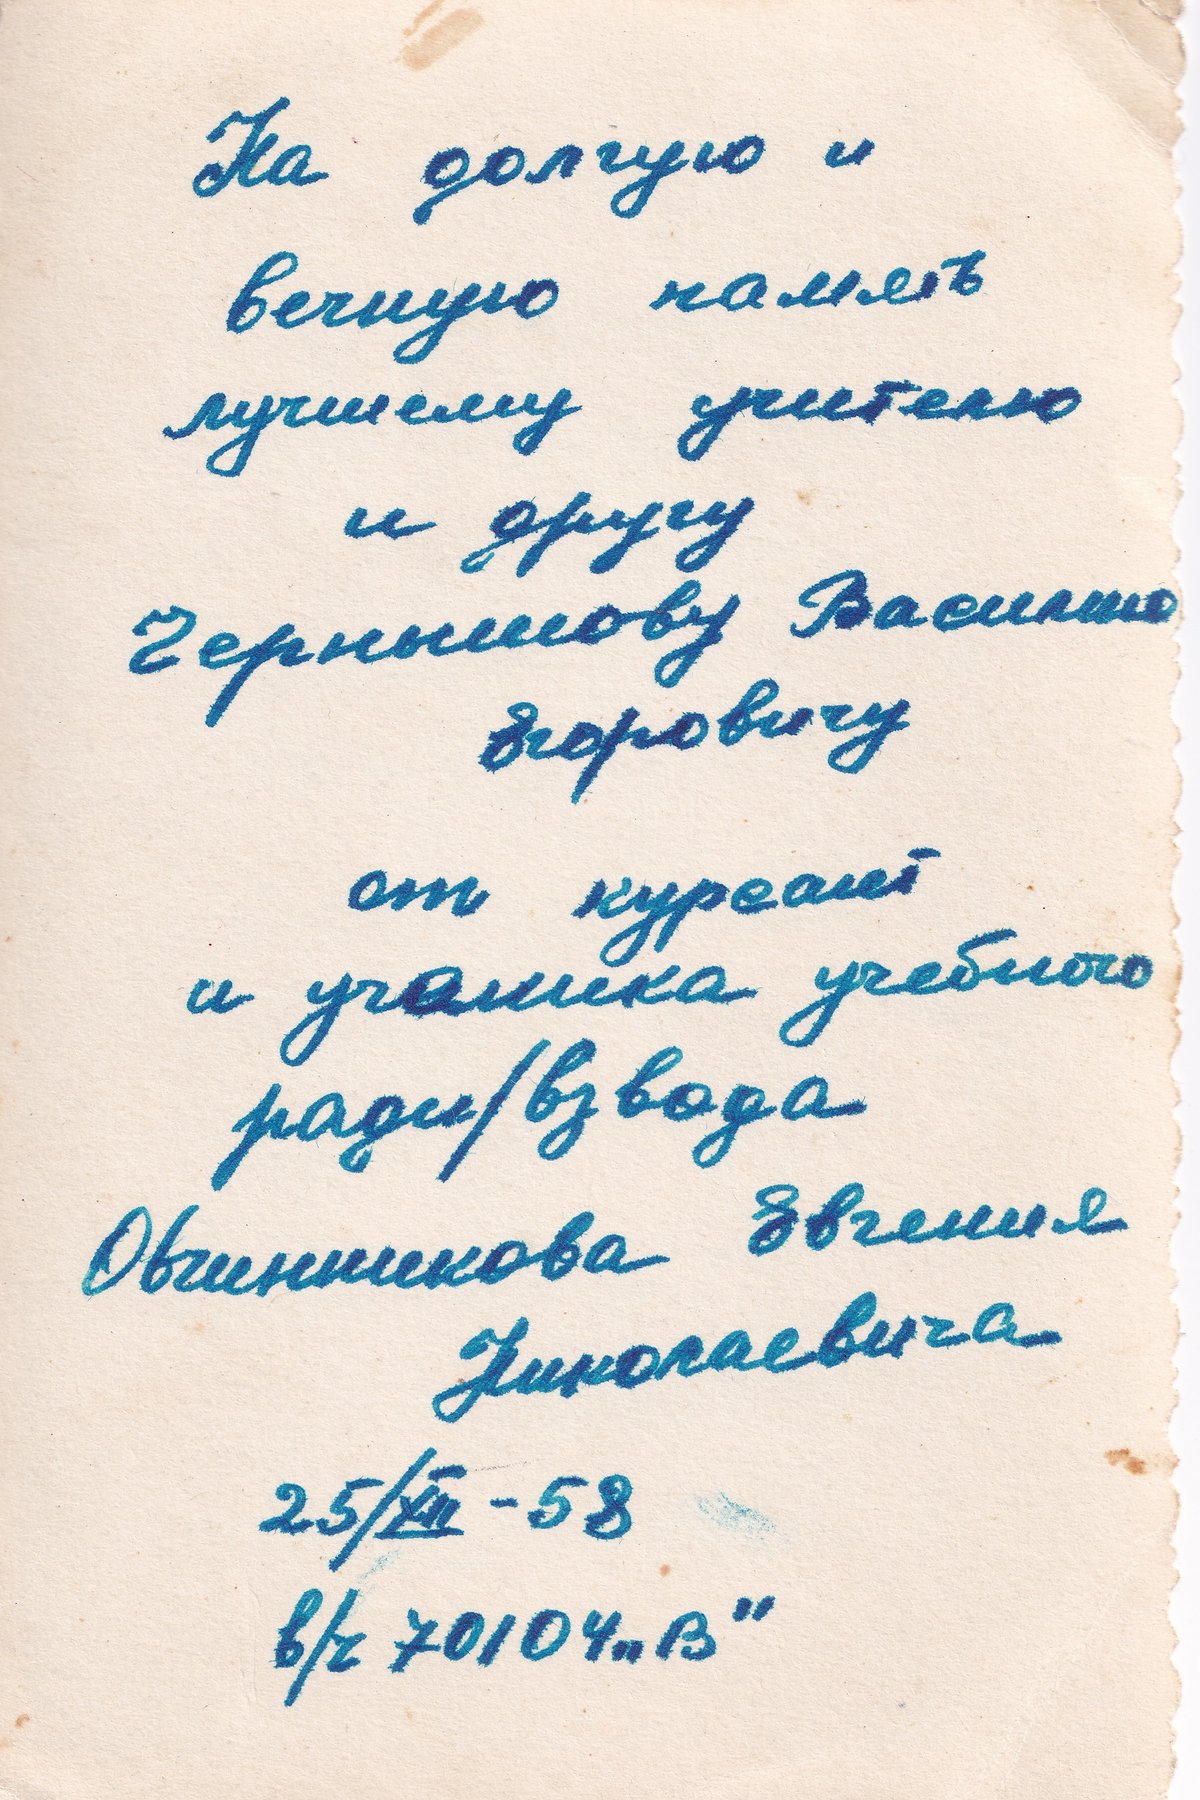 На долгую и
вечную память
лучшему учителю
и другу
Чернышову Василию
Егоровичу
от курсант
и ученика учебного
ради/взвода
Овчинникова Евгения
Николаевича
25/XII - 58
в/ч 70104 „В"